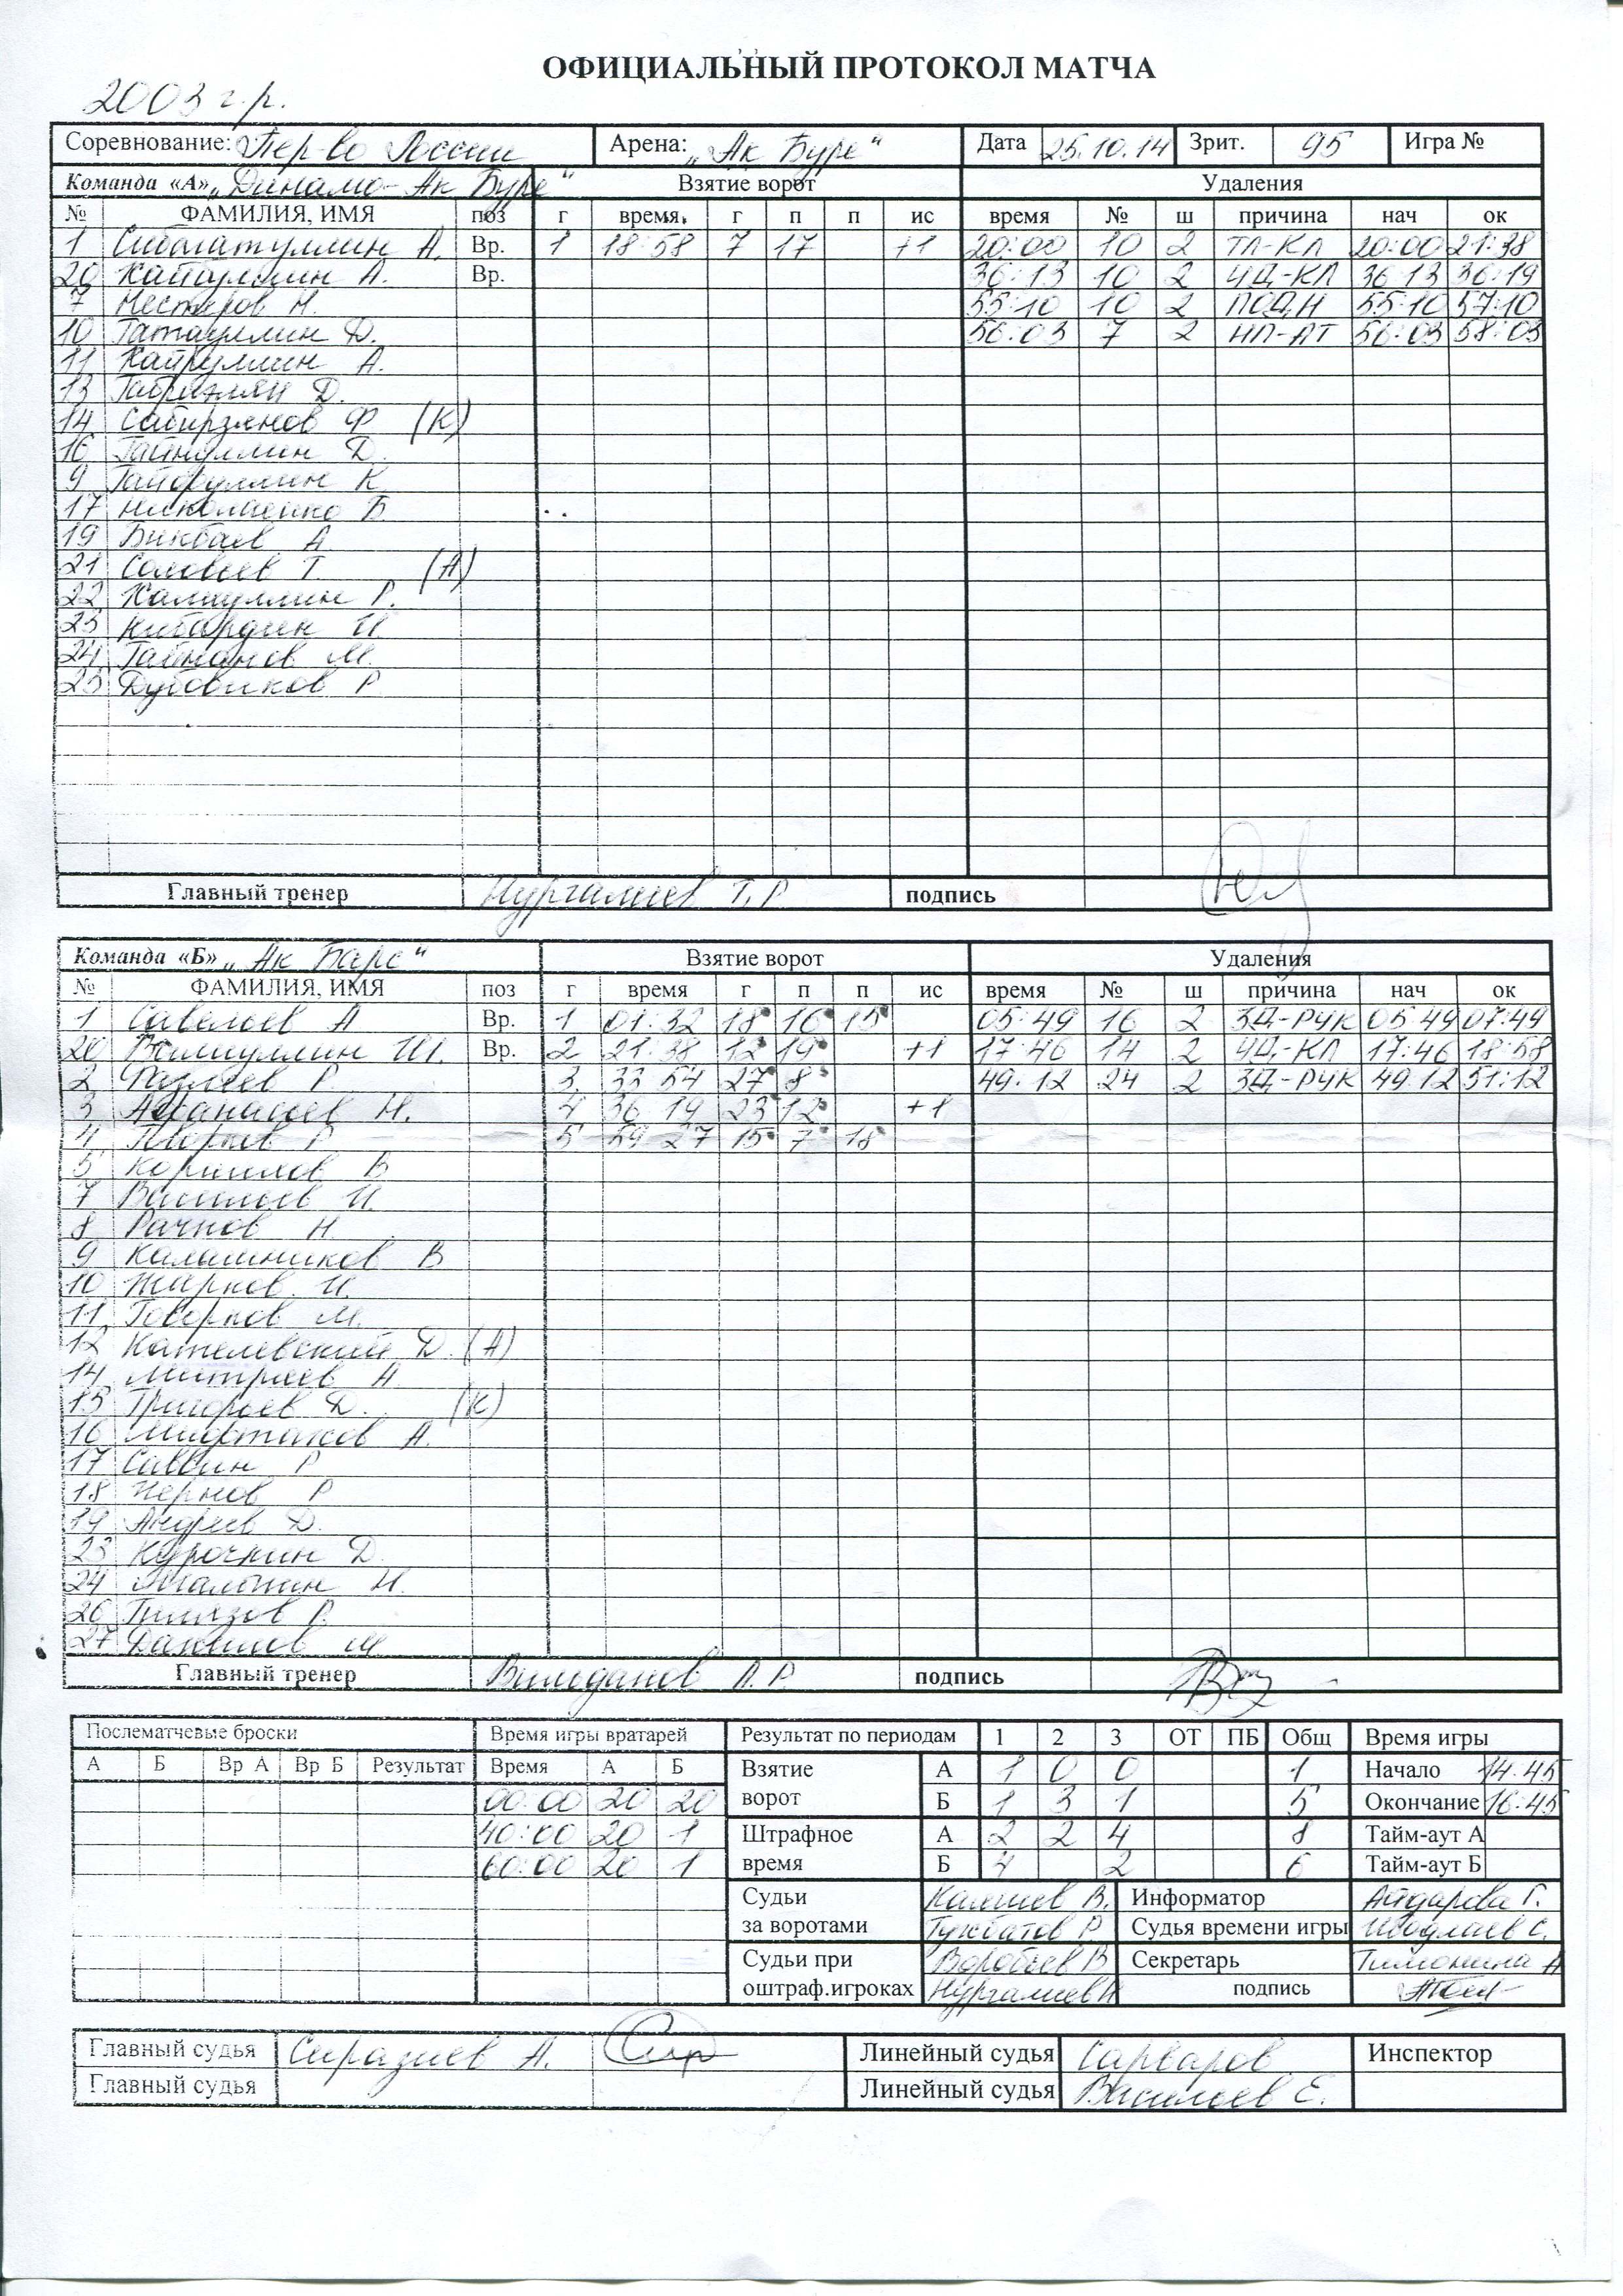 ОФИЦИАЛЬНЫЙ ПРОТОКОЛ МАТЧА
2003 г.р.
Соревнование: Пер-во России Арена: „Ак Буре“ Дата 25.10.14 Зрит. 95 Игра №
Команда «А» „Динамо-Ак Буре“ Взятие ворот Удаления
№ ФАМИЛИЯ, ИМЯ поз г время г п п ис время № ш причина нач ок
1 Сибагатуллин А. Вр. 1 18:58 7 17 +1 20:00 10 2 ТЛ-КЛ 20:00 21:38
20 Хайруллин А. Вр. 36:13 10 2 ЧД-КЛ 36 13 36:19
7 Нестеров Н. 55:10 10 2 ПОДН 55:10 57:10
10 Гатауллин Д. 56:03 7 2 НП-АТ 56:03 58:03
11 Хайруллин А.
13 Д.
14 Сабирзянов Ф (К)
16 Гайнуллин Д.
9 К
17 Николаенко Б.
19 Бикбаев А
21 Соловьев Т. (А)
22 Халиуллин Р.
23 Кибардин И.
24 Гайнанов М.
25 Дубовиков Р
Главный тренер Нургалиев Т.Р подпись
Команда «Б» „Ак Барс“ Взятие ворот Удаления
№ ФАМИЛИЯ, ИМЯ поз г время г п п ис время № ш причина нач ок
1 Савельев А Вр. 1 01:32 18 16 15 05:49 16 2 ЗД-РУК 05 49 07:49
20 Валиуллин Ш. Вр. 2 21:38 12 19 +1 17:46 14 2 ЧД-КЛ 17:46 18:58
2 Р 3 33 54 27 8 49:12 24 2 ЗД-РУК 49 12 51:12
3 Афанасьев Н. 4 36 19 23 12 +1
4 Р 5 59 27 15 7 18
5 Корнилов В
7 Васильев И.
8 Рачков Н
9 Калашников В
10 Жарков И.
11 Говорков М.
12 Д. (А)
14 Митряев А
15 Григорьев Д. (К)
16 А.
17 Саввин Р
18 Чернов Р
19 Андреев Д.
23 Курочкин Д.
24 Н.
26 Гилязов Р.
27 Данилов М
Главный тренер Вилданов А.Р. подпись
Послематчевые броски Время игры вратарей Результат по периодам 1 2 3 ОТ ПБ Общ Время игры
А Б Вр А Вр Б Результат Время А Б Взятие А 1 0 0 1 Начало 14.45
00:00 20 20 ворот Б 1 3 1 5 Окончание 16:45
40:00 20 1 Штрафное А 2 2 4 8 Тайм-аут А
60:00 20 1 время Б 4 2 6 Тайм-аут Б
Судьи Калиев В. Информатор Айдарова Г.
за воротами Тухбатов Р. Судья времени игры С.
Судьи при Воробьев В Секретарь Тимонина А
оштраф.игроках Нургалиев И подпись
Главный судья Сиразиев А. Линейный судья Сарваров Инспектор
Главный судья Линейный судья Васильев Е.